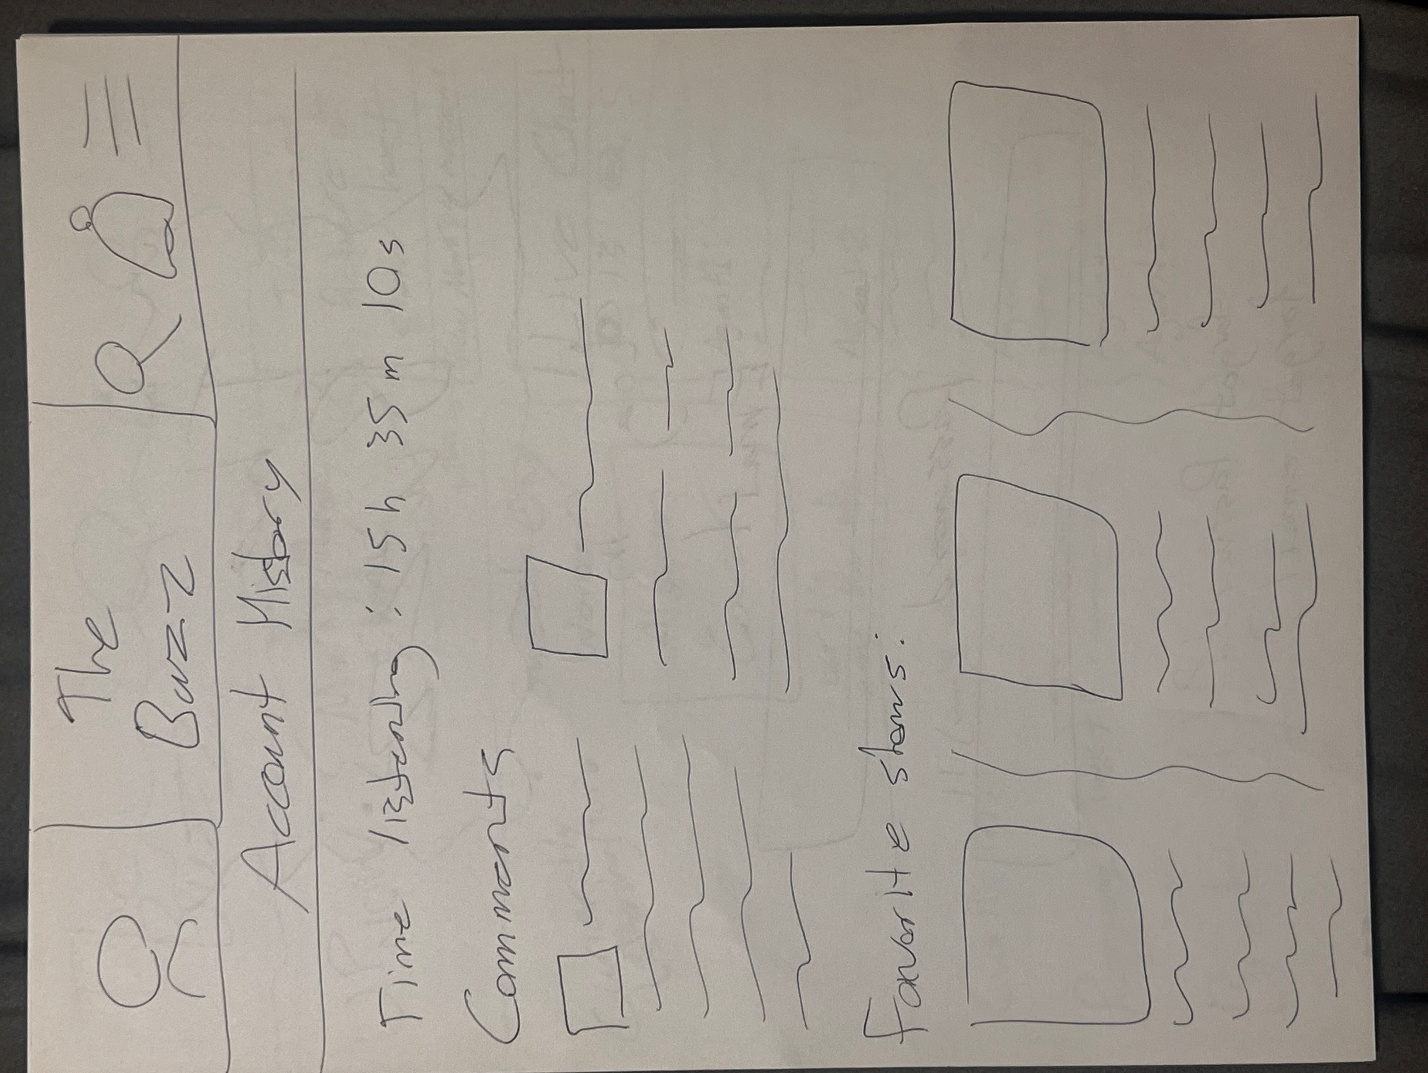 The
Buzz
Account History
Time listening: 15h 35m 10s
Comments
Favorite shows: